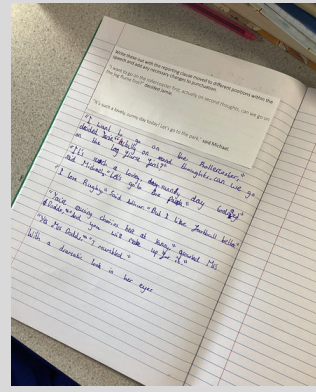 Write these out with the reporting clause moved to different positions within the
speech and add any necessary changes to punctuation.
"I want to go on the rollercoaster first, actually on second thoughts, can we go on
the log flume first?" decided Jamie.
"It's such a lovely, sunny day today! Let's go to the park," said Michael.
"I want to go on the Rollercoaster,"
decided Jamie "Actully on second thoughts can we go
on the log flume first?"
"It's such a lovely, sunny day today"
said Michael, "Let's go to the park"
"I love Rugby" said "But I like football better"
"You're owing chairs here at" Miss
"And you will make up for it."
"Yes Miss" I mumbled.
With a dramatic look in her eyes